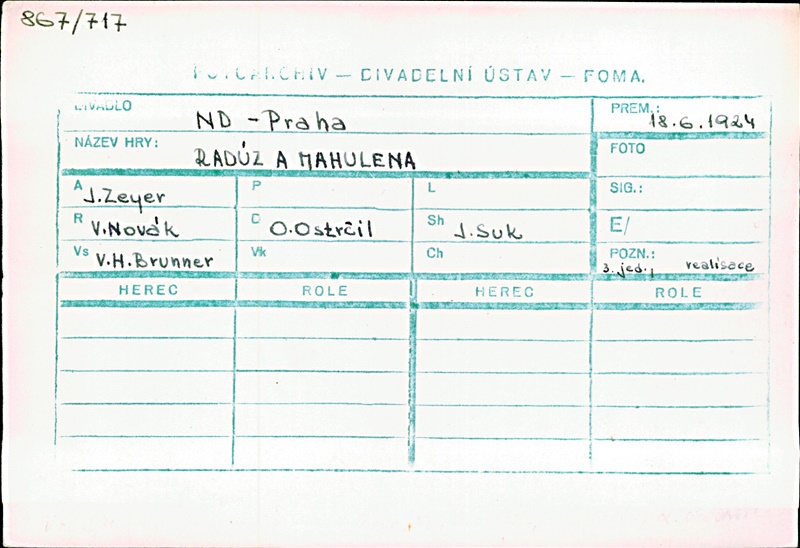 867/717
FOTOARCHIV – DIVADELNÍ ÚSTAV – FOMA.
DIVADLO ND - Praha
PREM.: 18.6.1924
NÁZEV HRY: RADÚZ A MAHULENA
FOTO
A J. Zeyer P L SIG.:
R V. Novák D O. Ostrčil Sh J. Suk E/
Vs V.H. Brunner Vk Ch POZN.: 3. jed., realisace
HEREC ROLE HEREC ROLE